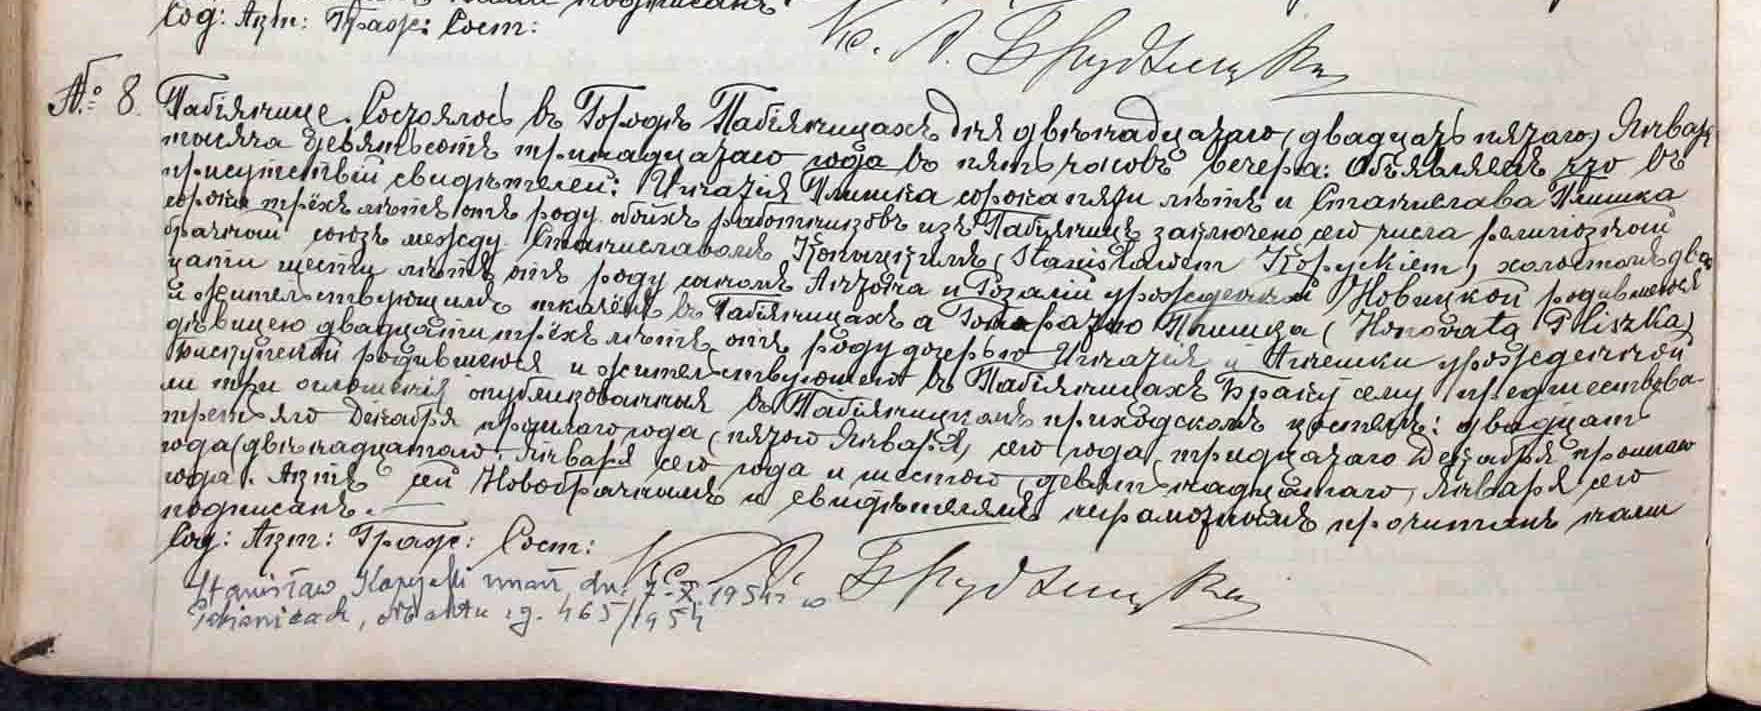 подписанъ.
Сод: Акт: Граж: Сост:
Кс. Л. Брудзинскій
№ 8.
Пабіянице. Состоялось въ Городѣ Пабіяницахъ дня двѣнадцатаго, (двадцать пятаго) Января
тысяча девятьсотъ тринадцатаго года въ пять часовъ вечера: Объявляемъ что въ
присутствіи свидѣтелей: Игнатія Плишка сорока пяти лѣтъ и Станислава Плишка
сорока трёхъ лѣтъ отъ роду обоихъ работниковъ изъ Пабіяницъ заключено сего числа религіозный
брачный союзъ между Станиславомъ Копыцкимъ (Stanisławem Kopyckiem) холостымъ два
цати шести лѣтъ отъ роду сыномъ Антона и Розаліи урожденной Новицкой родившемся
и жительствующимъ ткачёмъ въ Пабіяницахъ а Гоноратою Плишка (Honorata Pliszka)
дѣвицею двадцати трёхъ лѣтъ отъ роду дочерью Игнатія и Агнешки урожденной
родившеюся и жительствующею въ Пабіяницахъ Браку сему предшествова-
ли три оглашенія опубликованныя въ Пабіяницкомъ приходскомъ костелѣ: двадцать
третьяго Декабря прошлаго года (пятого Января) сего года, тридцатаго Декабря прошлаго
года (двѣнадцатого) Января сего года и шестого (девятнадцатаго) Января сего
года. Актъ сей Новобрачнымъ и свидѣтелямъ неграмотнымъ прочитанъ нами
подписанъ.
Сод: Акт: Граж: Сост:
Кс. Л. Брудзинскій
Stanisław Kopycki zmarł dn. 7-X-1954 r w
Pabianicach, Nr aktu zg. 465/1954